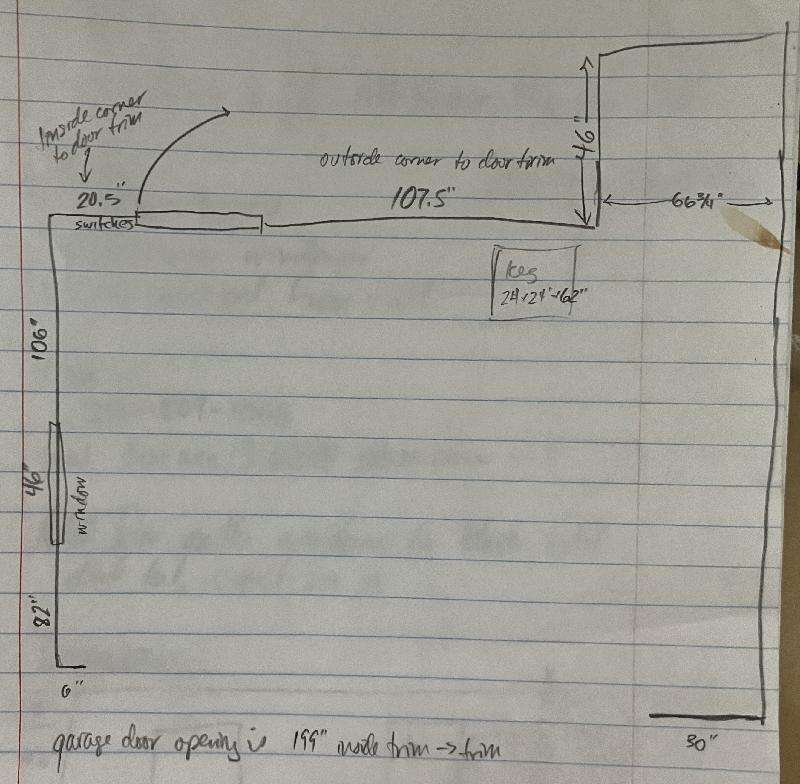 Inside corner
to door trim
20.5"
switches
outside corner to door trim
107.5"
46"
66 3/4"
Keg
24×24"×62"
106"
46"
window
82"
6"
30"
garage door opening is 199" inside trim → trim